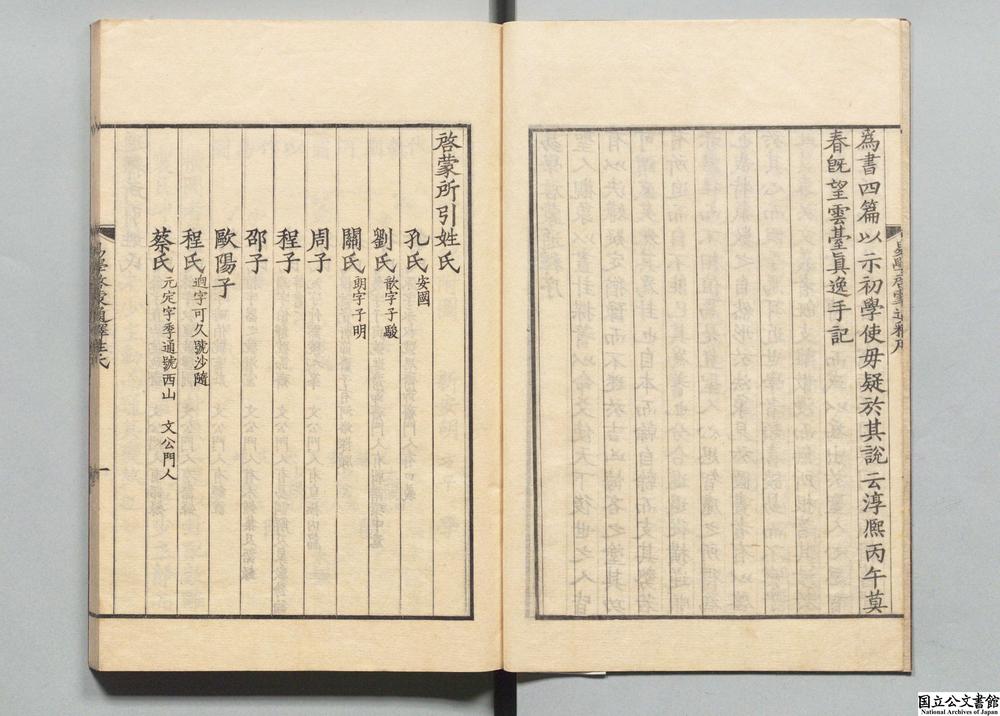 爲書四篇以示初學使毋疑於其説云淳熈丙午莫
春旣望雲臺眞逸手記
啓蒙所引姓氏
孔氏安國
劉氏歆字子駿
關氏朗字子明
周子
程子
邵子
歐陽子
程氏逈字可久號沙隨
蔡氏元定字季通號西山 文公門人
一
国立公文書館
National Archives of Japan